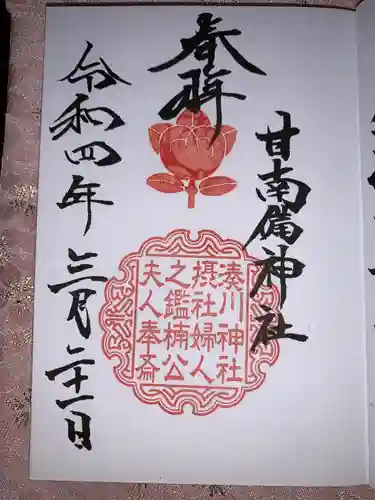 奉拝
甘南備神社
湊川神社
摂社婦人
之鑑楠公
夫人奉斎
令和四年三月二十一日